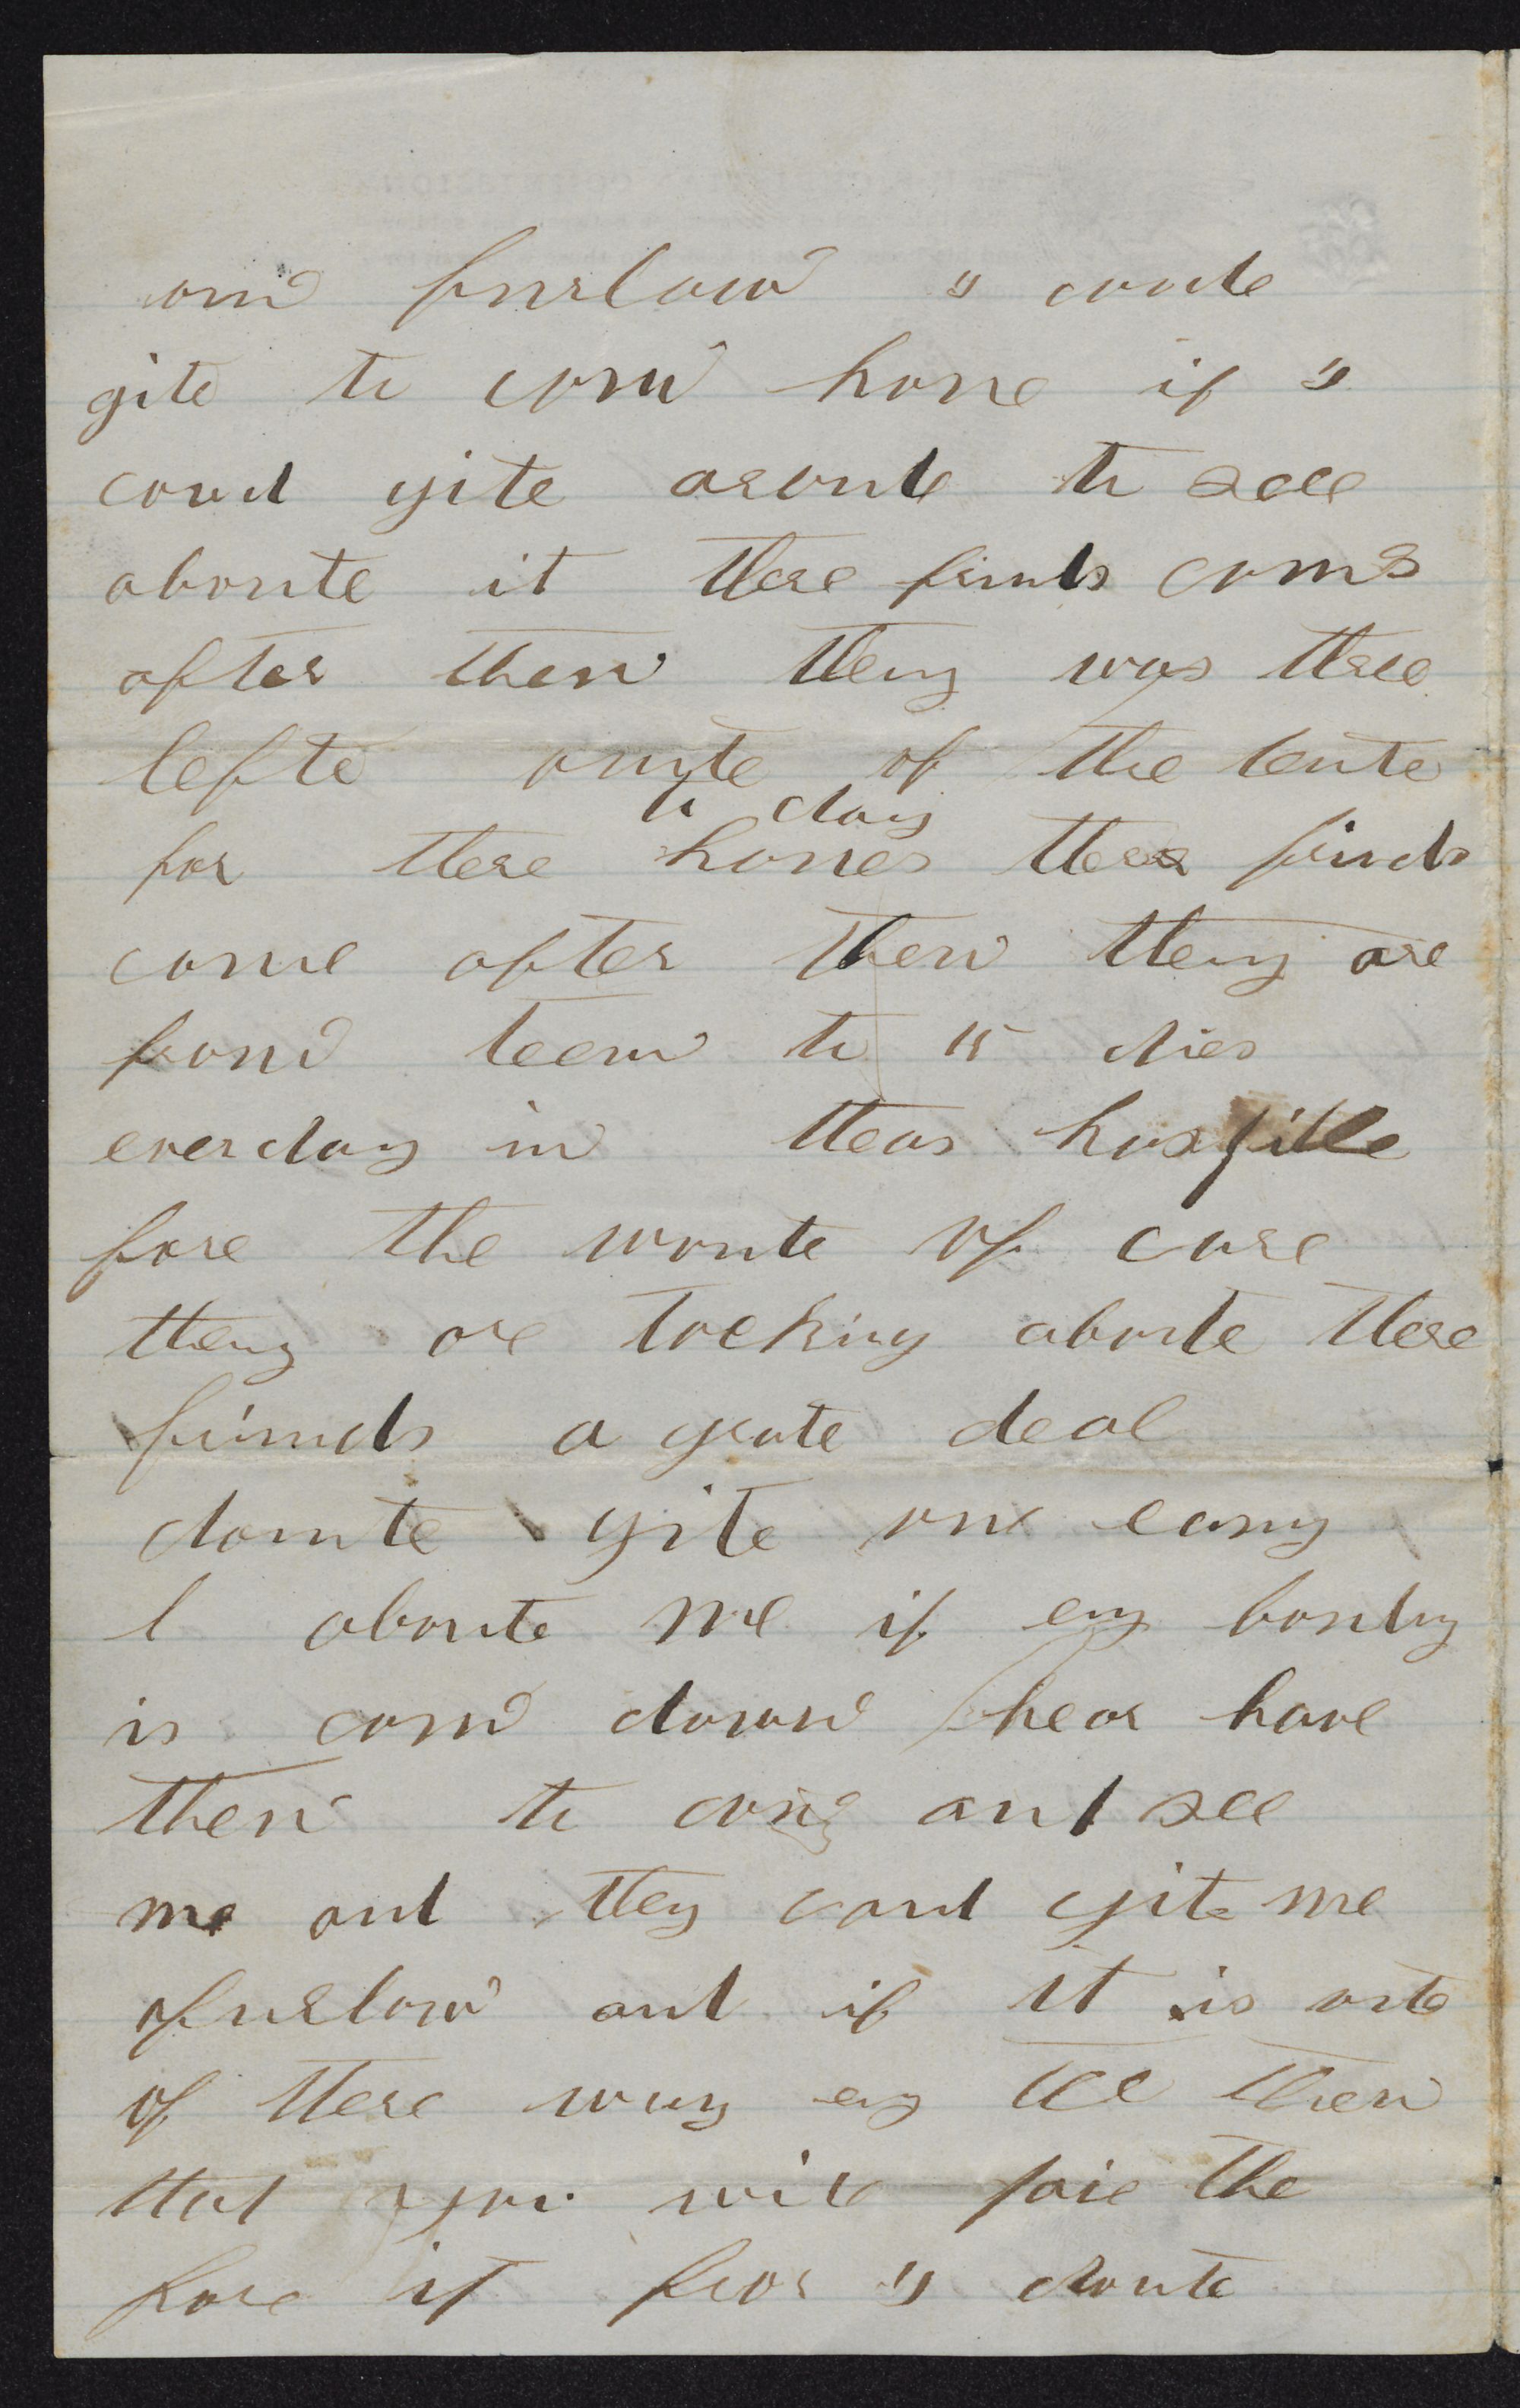 on furlow y coude
gite to com home if y
coud gite aroude to see
aboute it there frinds coms
after them they was three
lefte oute of the tente
for there homes to day there frinds
come after them they are
from teen to 15 dies
everday in theas hospitle
fore the wonte of care
they are tocking aboute there
frinds a grate deal
donte gite onx
aboute me if eny bondy
is com down hear have
them to come and see
me and they coud gite me
a furlow and if it is oute
of there way eny tel them
that you will paie the
fare it fear y donte